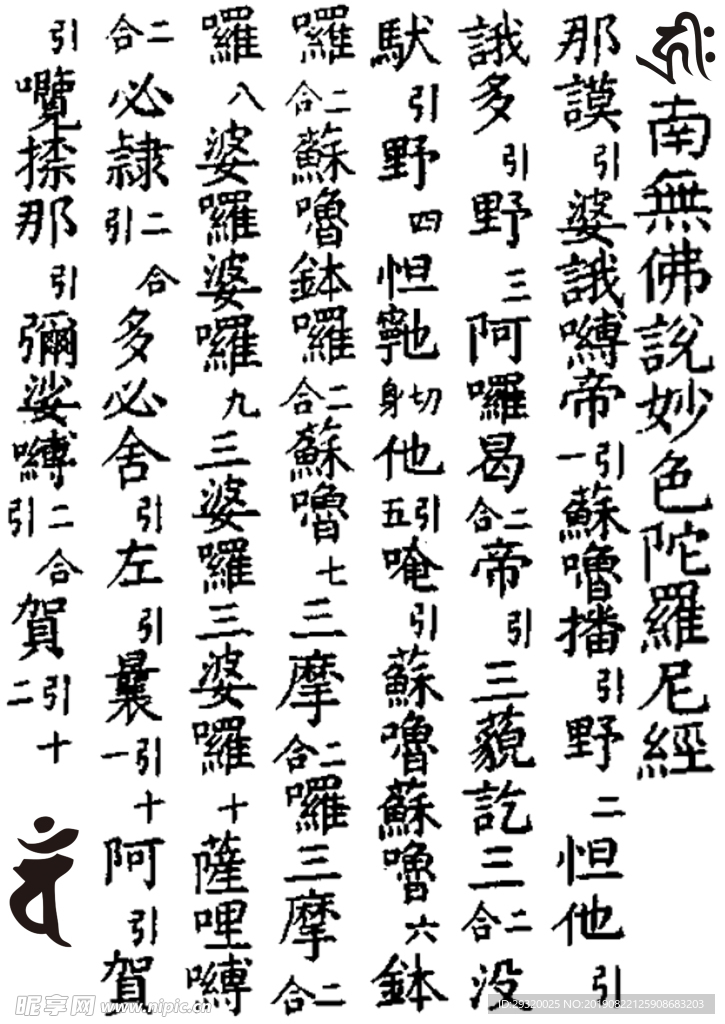 南無佛說妙色陀羅尼經
那謨引婆誐嚩帝引一蘇嚕播引野二怛他引
誐多引野三阿囉曷二合帝引三藐訖三二合没
馱引野四怛切身他引五唵引蘇嚕蘇嚕六鉢
囉二合蘇嚕鉢囉二合蘇嚕七三摩二合囉三摩二合
囉八婆囉婆囉九三婆囉三婆囉十薩哩嚩
二合必隸二合引多必舍引左引曩引十一阿引賀
引囕捺那引彌娑嚩二合引賀引十二
昵享网 www.nipic.cn
ID:29320025 NO:20190822125908683203